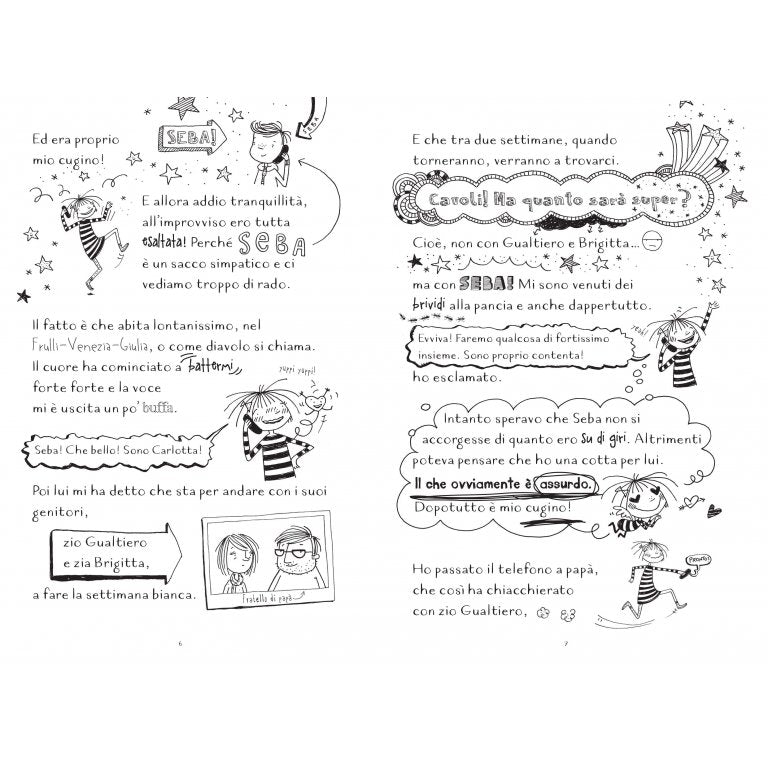 Ed era proprio
mio cugino!
SEBA!
SEBA
E allora addio tranquillità,
all'improvviso ero tutta
esaltata! Perché SEBA
è un sacco simpatico e ci
vediamo troppo di rado.
Il fatto è che abita lontanissimo, nel
Frulli-Venezia-Giulia, o come diavolo si chiama.
Il cuore ha cominciato a battermi
forte forte e la voce
mi è uscita un po' buffa.
yuppi yuppi!
Seba! Che bello! Sono Carlotta!
Poi lui mi ha detto che sta per andare con i suoi
genitori,
zio Gualtiero
e zia Brigitta,
a fare la settimana bianca.
fratello di papà
6
E che tra due settimane, quando
torneranno, verranno a trovarci.
Cavoli! Ma quanto sarà super?
Cioè, non con Gualtiero e Brigitta...
ma con SEBA! Mi sono venuti dei
brividi alla pancia e anche dappertutto.
yeah!
Evviva! Faremo qualcosa di fortissimo
insieme. Sono proprio contenta!
ho esclamato.
Intanto speravo che Seba non si
accorgesse di quanto ero su di giri. Altrimenti
poteva pensare che ho una cotta per lui.
Il che ovviamente è assurdo.
Dopotutto è mio cugino!
Ho passato il telefono a papà,
che così ha chiacchierato
con zio Gualtiero,
PRONTO!
7